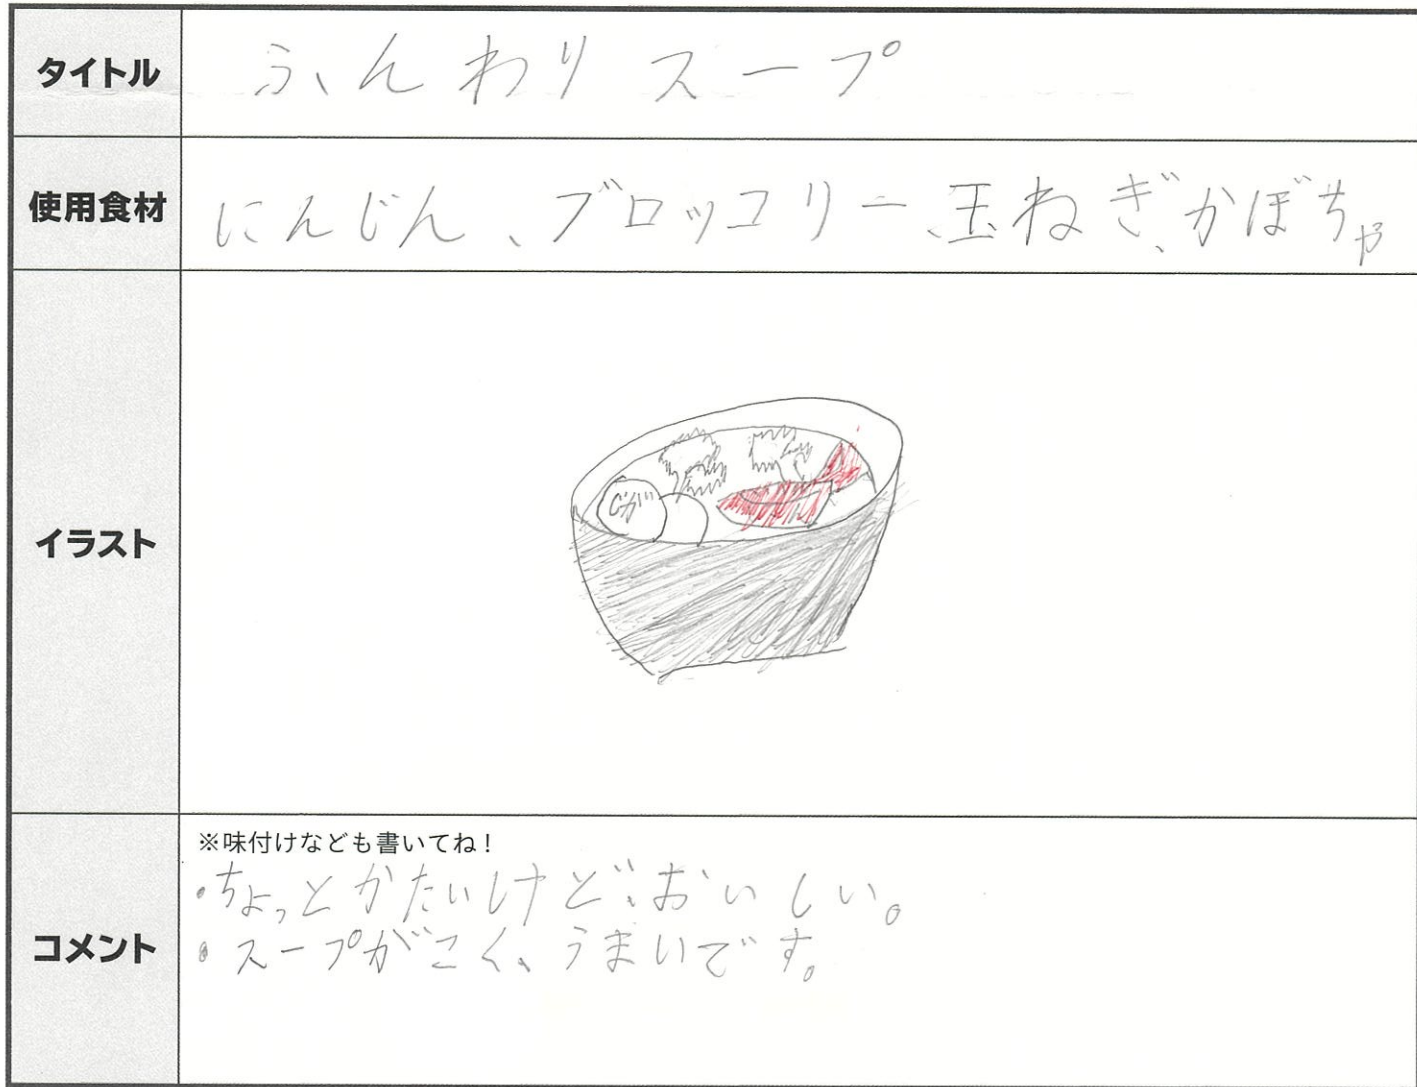 タイトル
ふんわりスープ
使用食材
にんじん、ブロッコリー、玉ねぎ、かぼちゃ
イラスト
じが
コメント
※味付けなども書いてね！
・ちょっとかたいけど、おいしい。
・スープがこく、うまいです。